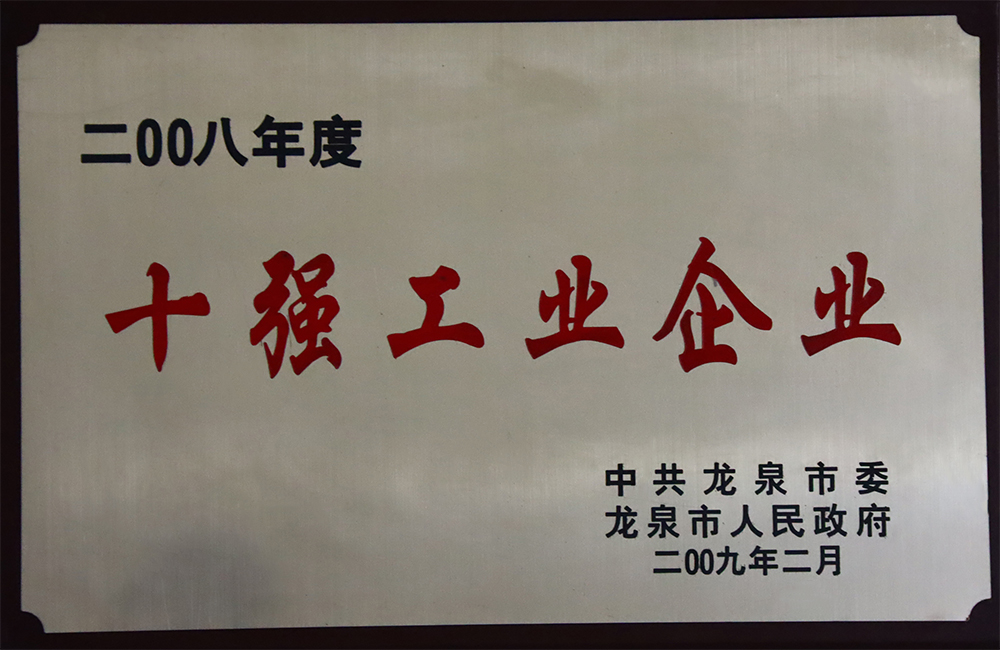 二00八年度
十强工业企业
中共龙泉市委
龙泉市人民政府
二00九年二月